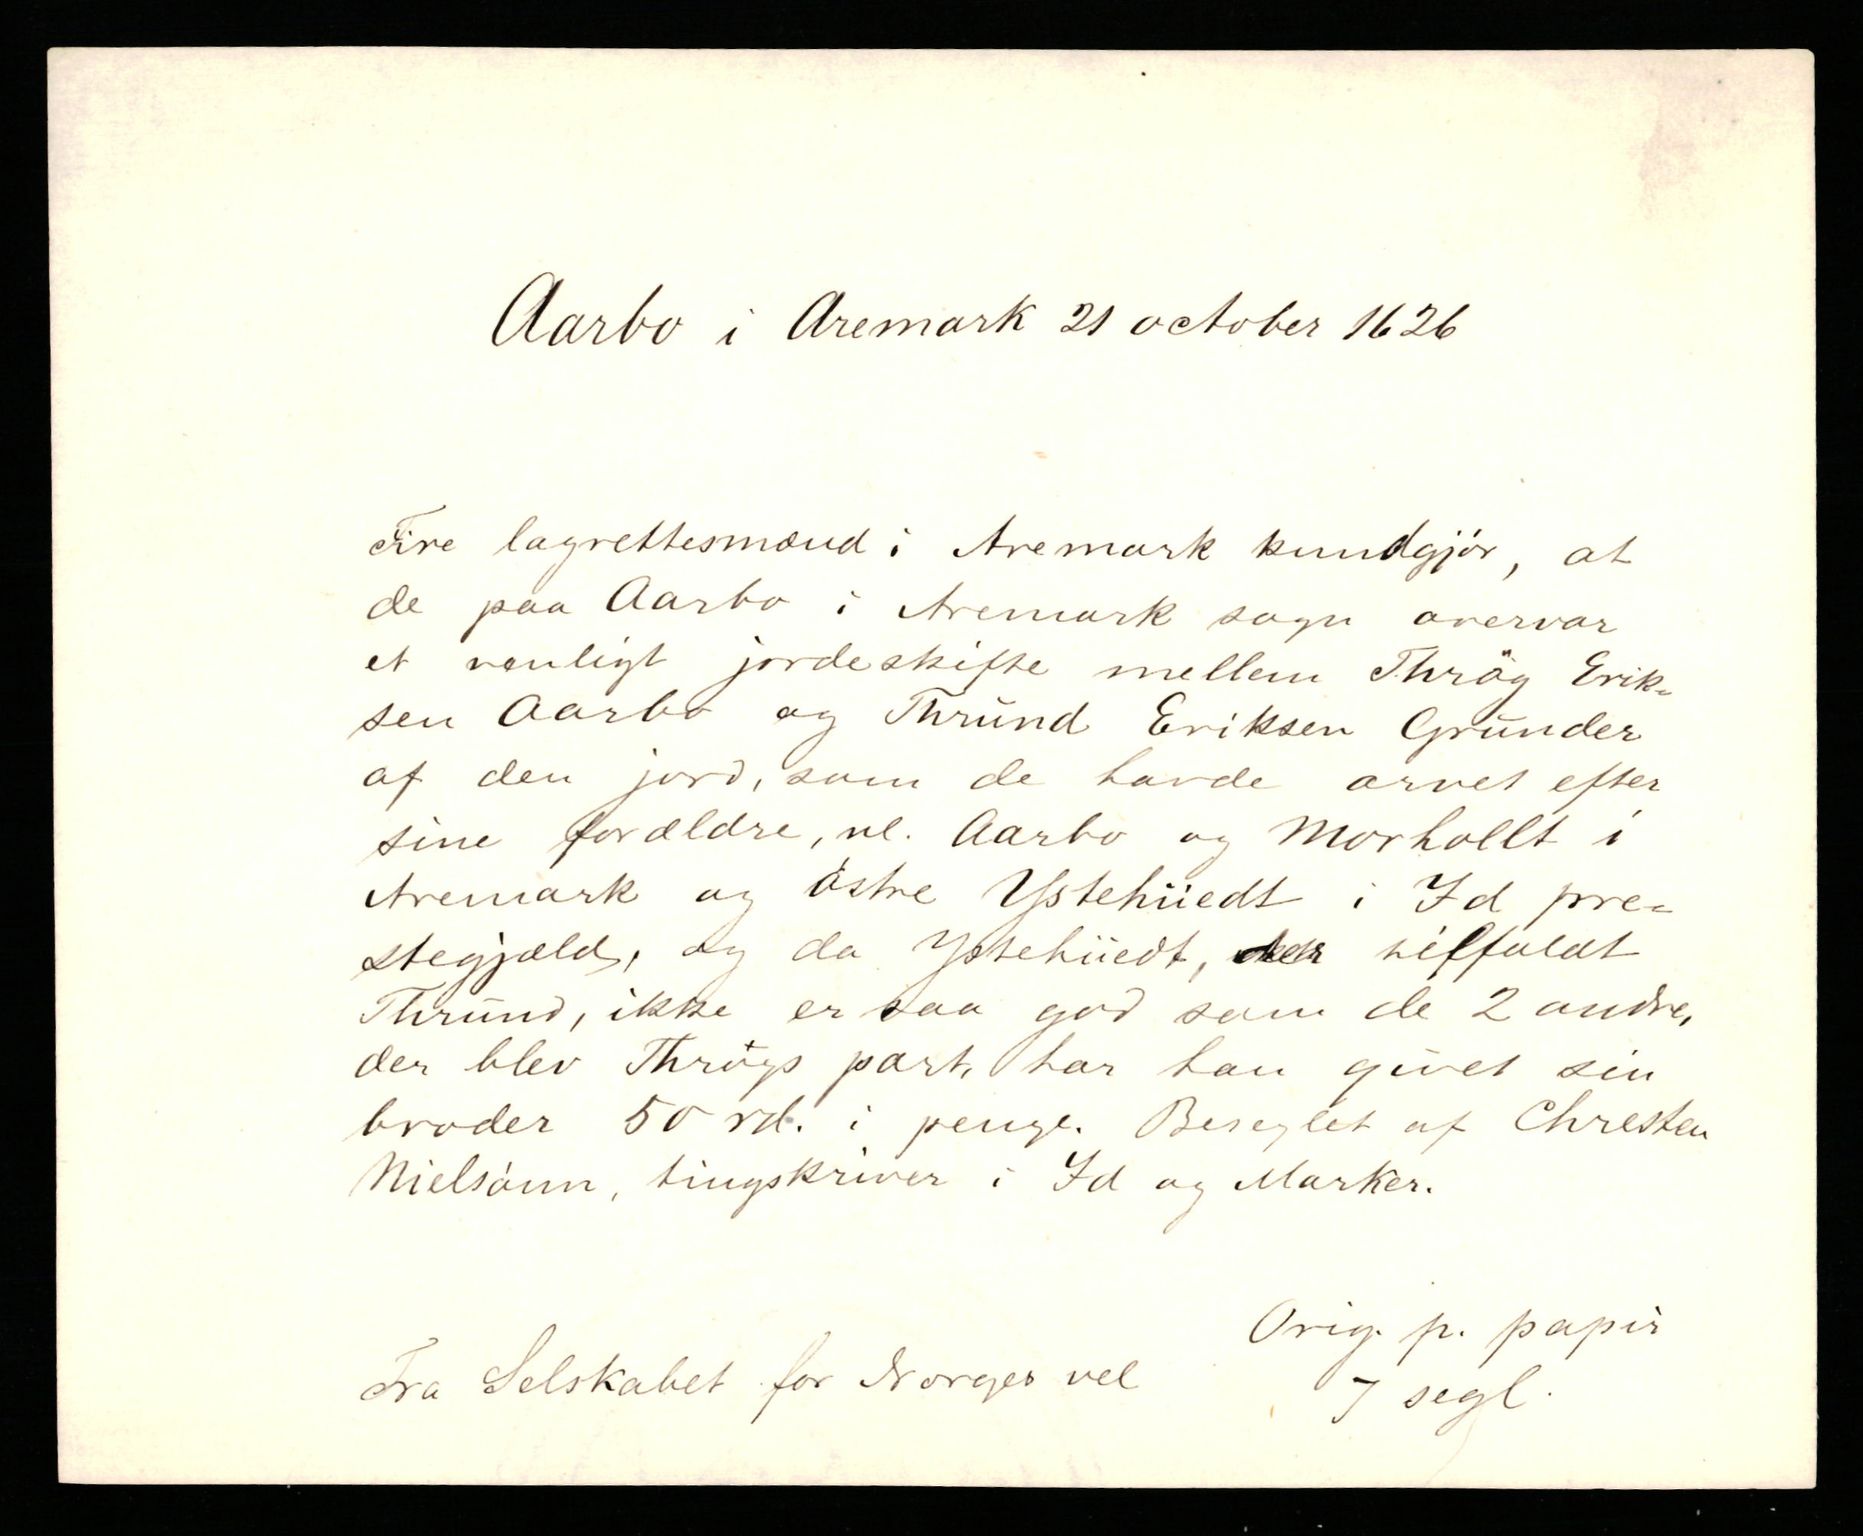 Aarbo i Aremark 21 october 1626
Fire lagrettesmænd i Aremark kundgjör, at
de paa Aarbo i Aremark sogn overvar
et venligt jordeskifte mellem Thrög Erik-
sen Aarbo og Thrund Eriksen Grunder
af den jord, som de havde arvet efter
sine forældre, nl. Aarbo og Morhollt i
Aremark og östre Ystehüedt i Id pre-
stegjæld, og da Ystehüedt, der tilfaldt
Thrund, ikke er saa god som de 2 andre,
der blev Thrögs part, har han givet sin
broder 50 rd. i penge. Beseglet af Chresten
Nielsönn, tingskriver i Id og Marker.
Orig. p. papir
Fra Selskabet for Norges vel
7 segl.